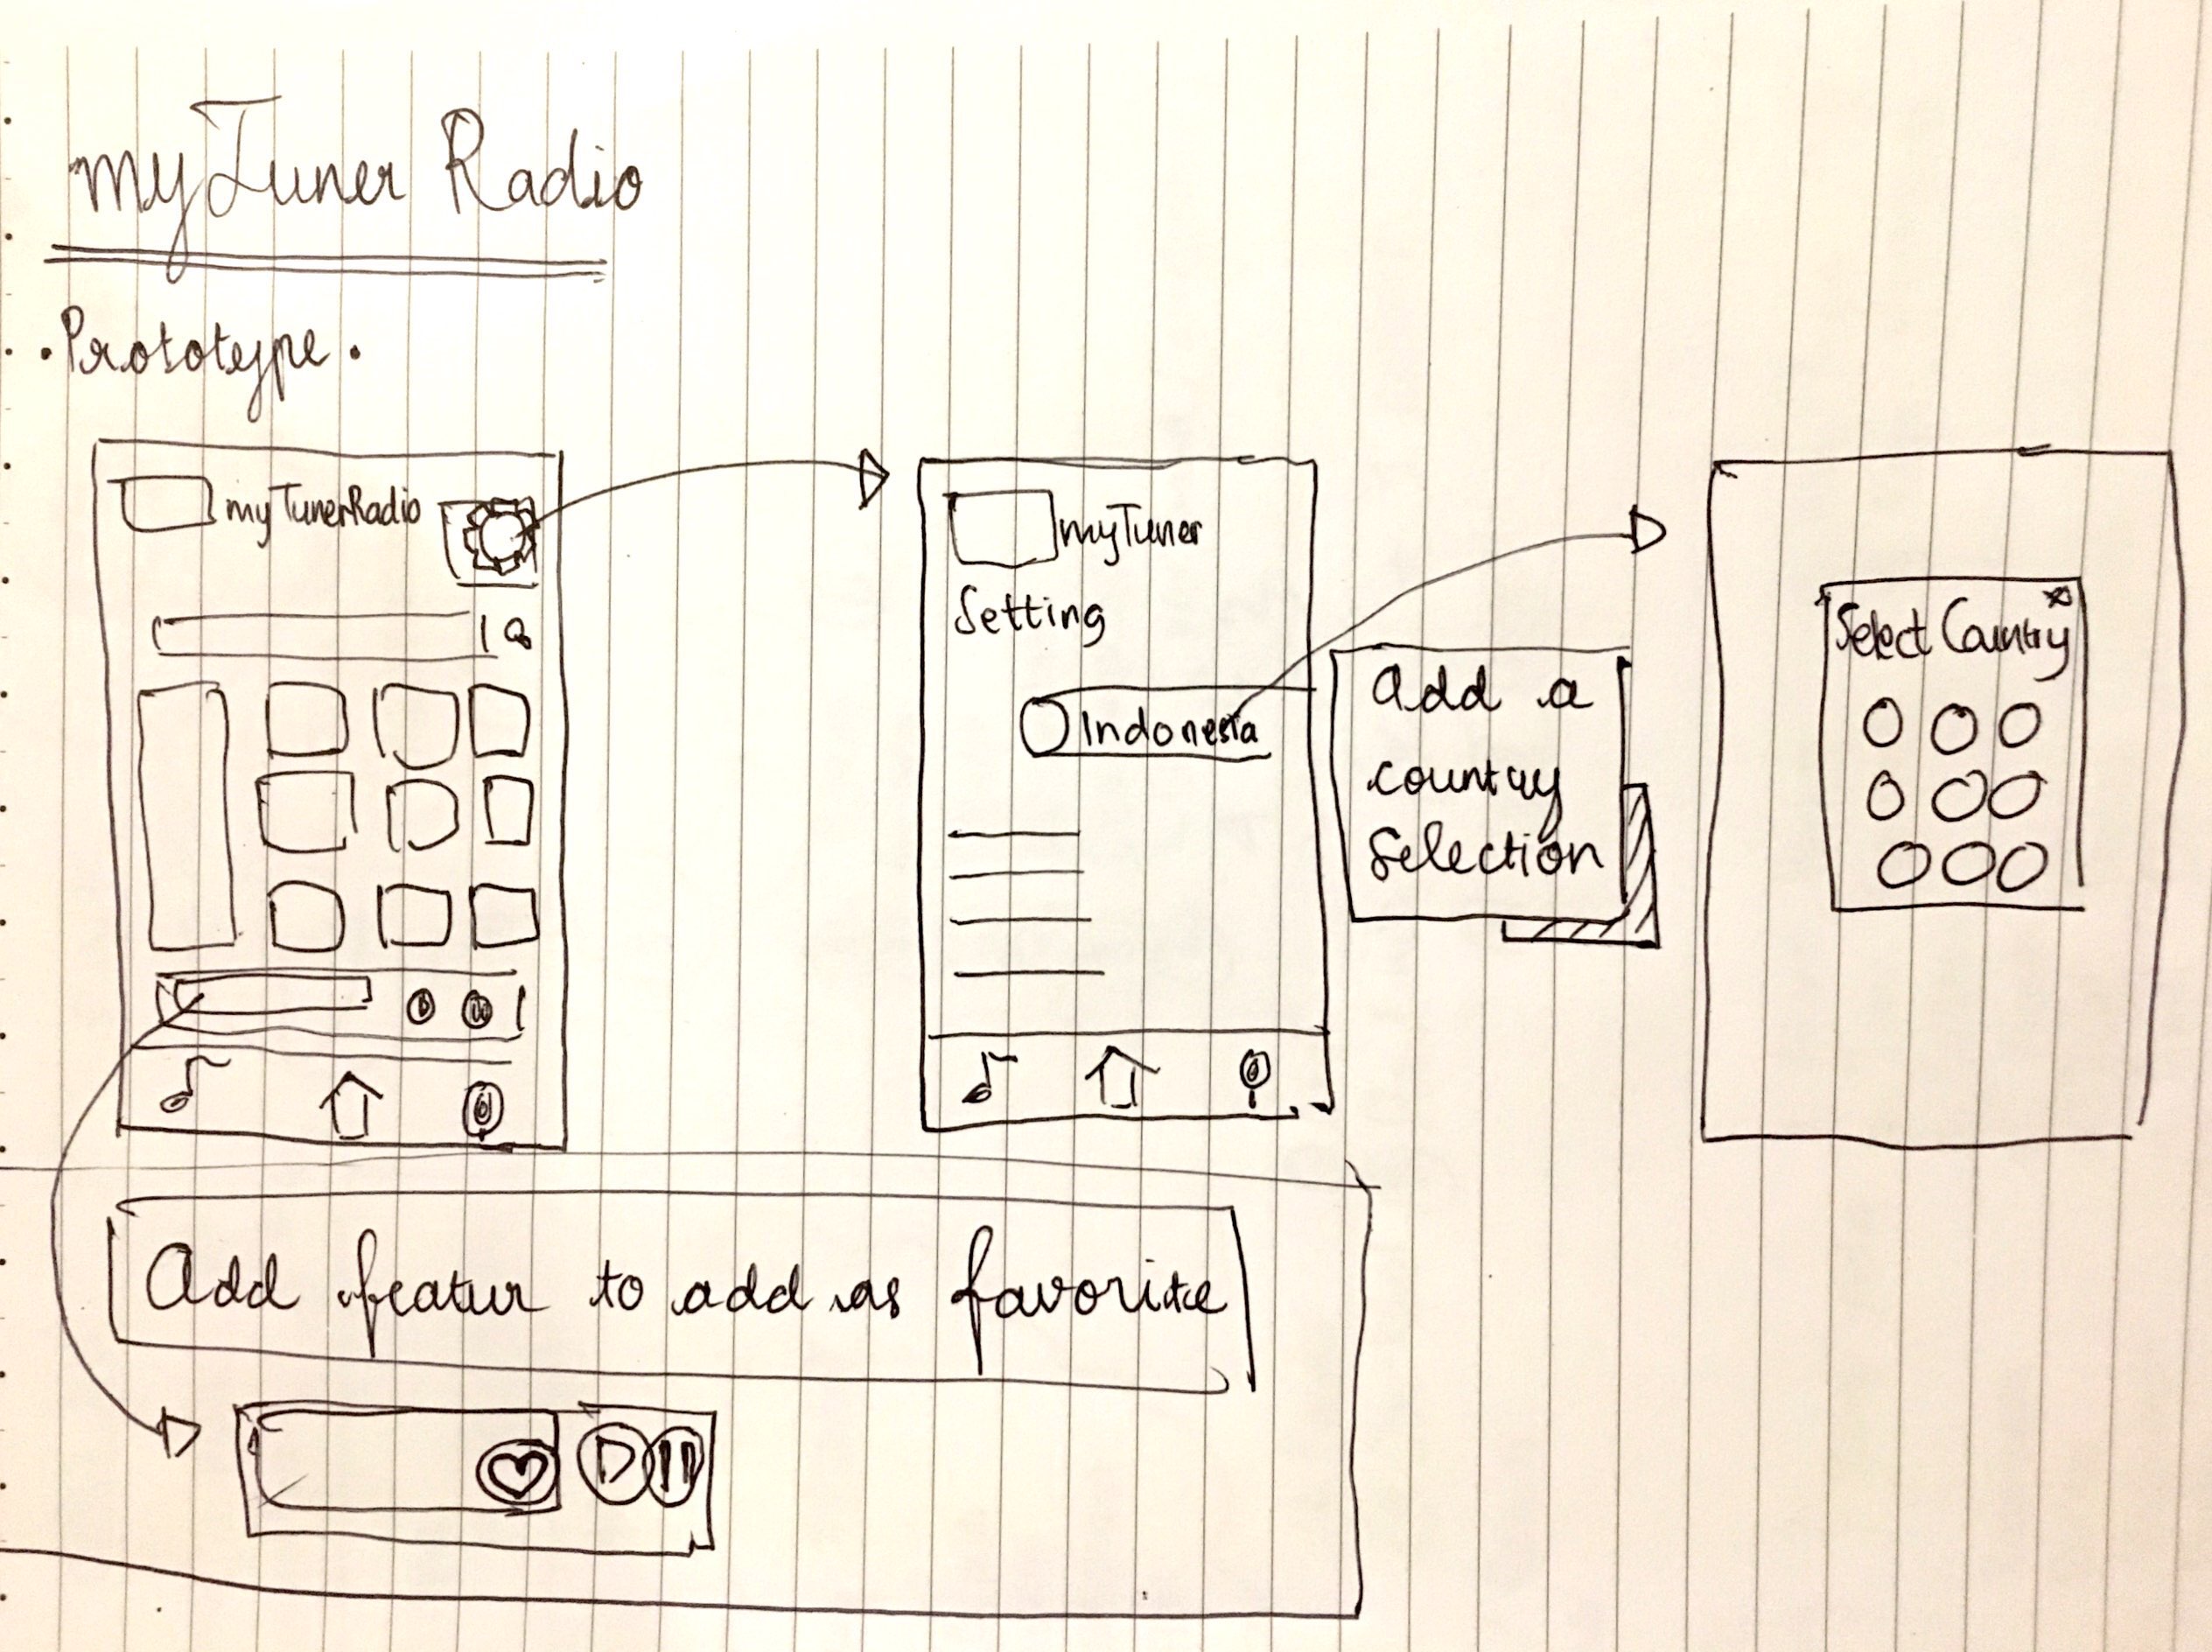 myTuner Radio
• Prototype •
myTunerRadio
myTuner
Setting
Indonesia
Add a
country
Selection
Select Country
x
Add featur to add as favorite